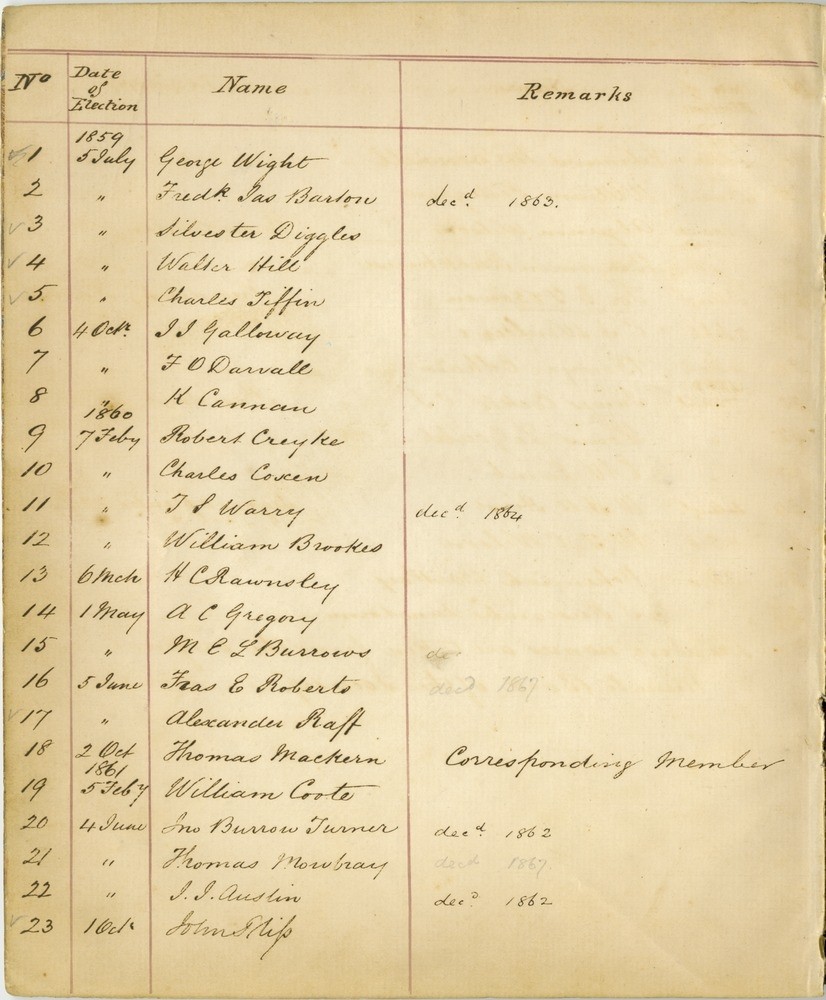 No Date of Election Name Remarks
1859
1 5 July George Wight
2 " Fredk. Jas Barton decd. 1863.
3 " Silvester Diggles
4 " Walter Hill
5. " Charles Tiffin
6 4 Octr. J J Galloway
7 " F O Darvall
8 " K Cannan
1860
9 7 Feby Robert Creyke
10 " Charles Coxen
11 " T S Warry decd. 1864
12 " William Brookes
13 6 Mch H C Rawnsley
14 1 May A C Gregory
15 " M E L Burrows de
16 5 June Fras E Roberts decd 1867
17 " Alexander Raff
18 2 Oct Thomas Mackern Corresponding Member
1861
19 5 Feby William Coote
20 4 June Jno Burrow Turner decd. 1862
21 " Thomas Mowbray decd 1867
22 " J. J. Austin decd. 1862
23 1 Oct John